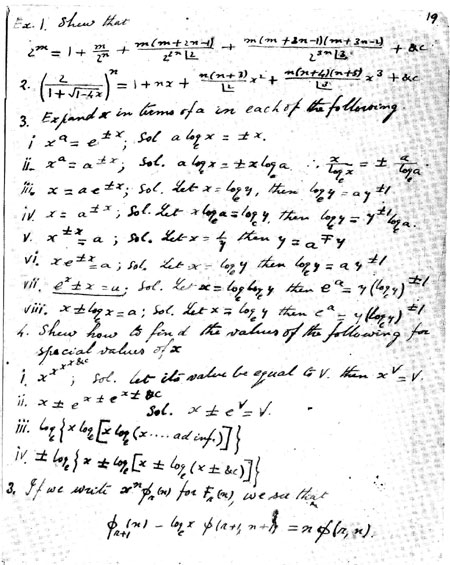 19
Ex. 1. Shew that
2^m = 1 + m/2^n + m(m+2n-1)/(2^{2n}|2) + m(m+3n-1)(m+3n-2)/(2^{3n}|3) + &c
2. (2/(1+√(1-4x)))^n = 1 + nx + n(n+3)/|2 x² + n(n+4)(n+5)/|3 x³ + &c
3. Expand x in terms of a in each of the following
i x^a = e^{±x}; Sol a log x = ±x.
ii. x^a = a^{±x}; Sol. a log x = ±x log_e a ∴ x/log_e x = ± a/log_e a.
iii. x = a e^{±x}; Sol. Let x = log_e y, then log_e y = a y^{±1}
iv. x = a^{±x}; Sol. Let x log_e a = log_e y, then log_e y = y^{±1} log_e a.
v. x^{±x} = a; Sol. Let x = 1/y then y = a^{∓y}
vi. x e^{±x} = a; Sol. Let x = log_e y then log_e y = a y^{∓1}
vii. e^x ± x = a; Sol. Let x = log_e log_e y then e^a = y (log_e y)^{±1}
viii. x ± log_e x = a; Sol. Let x = log_e y then e^a = y (log_e y)^{±1}.
4. Shew how to find the values of the following for
special values of x
i. x^{x^{x^{x &c}}}; Sol. Let its value be equal to V. then x^V = V.
ii. x ± e^{x ± e^{x ± &c}} Sol. x ± e^V = V.
iii. log_e {x log_e [x log_e (x .... ad inf.)]}
iv. ± log_e {x ± log_e [x ± log_e (x ± &c)]}
3. If we write x^n φ_r(n) for F_r(n), we see that
φ_{r+1}(n) - log_e x φ(r+1, n+1) = n φ(r, n).